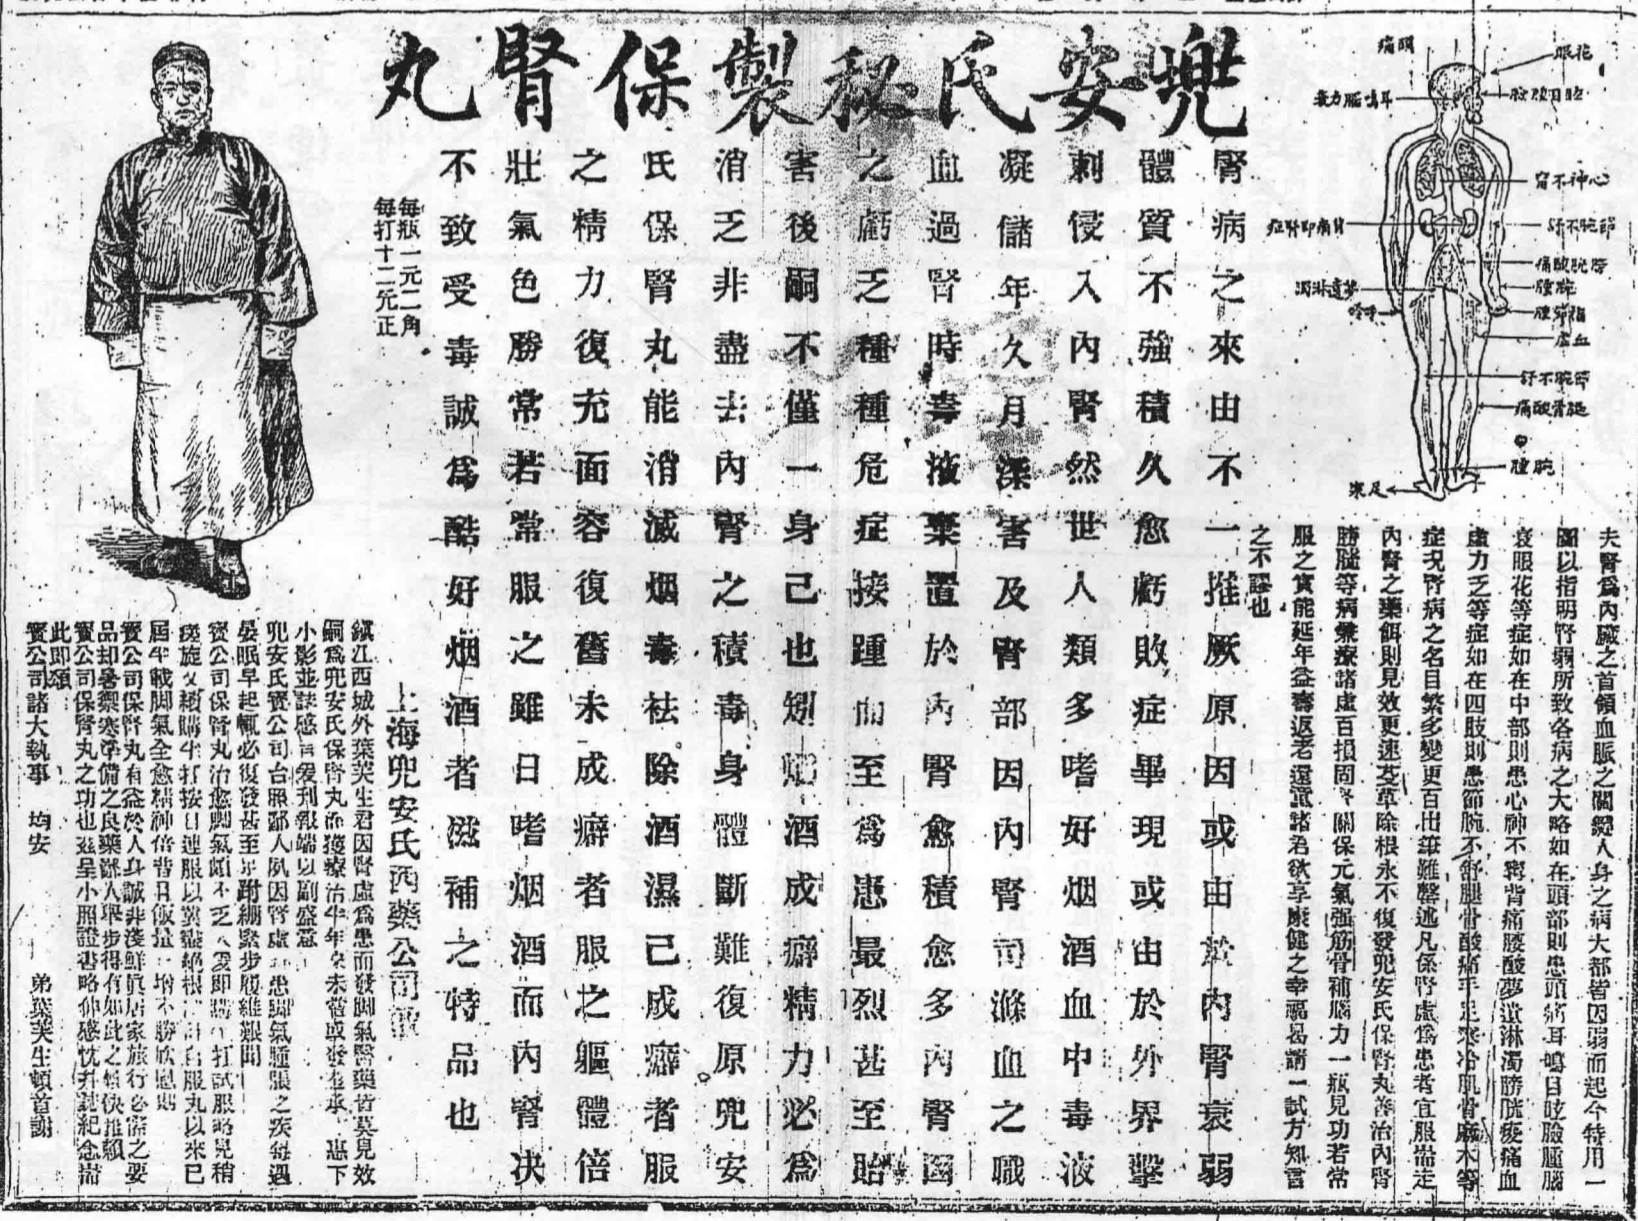 兜安氏秘製保腎丸
眼花
頭痛
耳鳴腦力衰
心神不甯
背痛即腎症
節腕不舒
膀胱酸痛
夢遺淋濁
腕腫
指節腫
血虛
節腕不舒
腿骨酸痛
腕腫
足寒
夫腎爲內臟之首領血脈之關鍵人身之病大都皆因弱而起今特用一
圖以指明腎弱所致各病之大略如在頭部則患頭痛耳鳴目眩臉腫腦
衰眼花等症如在中部則患心神不甯背痛腰酸夢遺淋濁膀胱痠痛血
虛力乏等症如在四肢則患節腕不舒腿骨酸痛手足寒冷肌骨麻木等
症現腎病之名目繁多變更百出筆難罄述凡係腎虛爲患者宜服耑走
內腎之藥餌則見效更速芟草除根永不復發兜安氏保腎丸善治內腎
膀胱等病兼療諸虛百損固腎關保元氣强筋骨補腦力一瓶見功若常
服之實能延年益壽返老還童諸君欲享康健之幸福曷請一試方知言
之不謬也
腎病之來由不一推厥原因或由於內腎衰弱
體質不強積久愈虧敗症畢現或由於外界擊
刺侵入內腎然世人類多嗜好烟酒血中毒液
凝儲年久月深害及腎部因內腎司滌血之職
血過腎時毒液棄置於內腎愈積愈多內腎因
之虧乏種種危症接踵而至爲患最烈甚至貽
害後嗣不僅一身己也矧烟酒成癖精力必爲
消乏非盡去內腎之積毒身體斷難復原兜安
氏保腎丸能消滅烟毒祛除酒濕已成癖者服
之精力復充面容復舊未成癖者服之軀體倍
壯氣色勝常若常服之雖日嗜烟酒而內腎决
不致受毒誠爲酷好烟酒者滋補之特品也
每瓶一元二角
每打十二元正
上海兜安氏西藥公司啟
鎭江西城外葉芙生君因腎虛爲患而發脚氣醫藥皆莫見效
嗣爲兜安氏保腎丸而獲療治半年來未嘗或發並承惠下
小影並誌感言爰刊報端以副盛意
兜安氏寶公司台照鄙人夙因腎虛而患脚氣腫脹之疾每遇
晏眠早起輒必復發甚至足跗綳緊步履維艱聞
寶公司保腎丸治愈脚氣頗不乏人爰即購半打試服略見稍
痊旋又續購半打按日連服以冀盡絕根
屆半載脚氣全愈精神倍昔日飯量
寶公司保腎丸有益於人身誠非淺鮮眞居家旅行必需之要
品却暑禦寒準備之良藥鄙人舉步得有如此之輕快推賴
寶公司保腎丸之功也茲呈小照證書略伸感忱幷誌紀念耑
此即頌
寶公司諸大執事　均安
弟葉芙生頓首謝